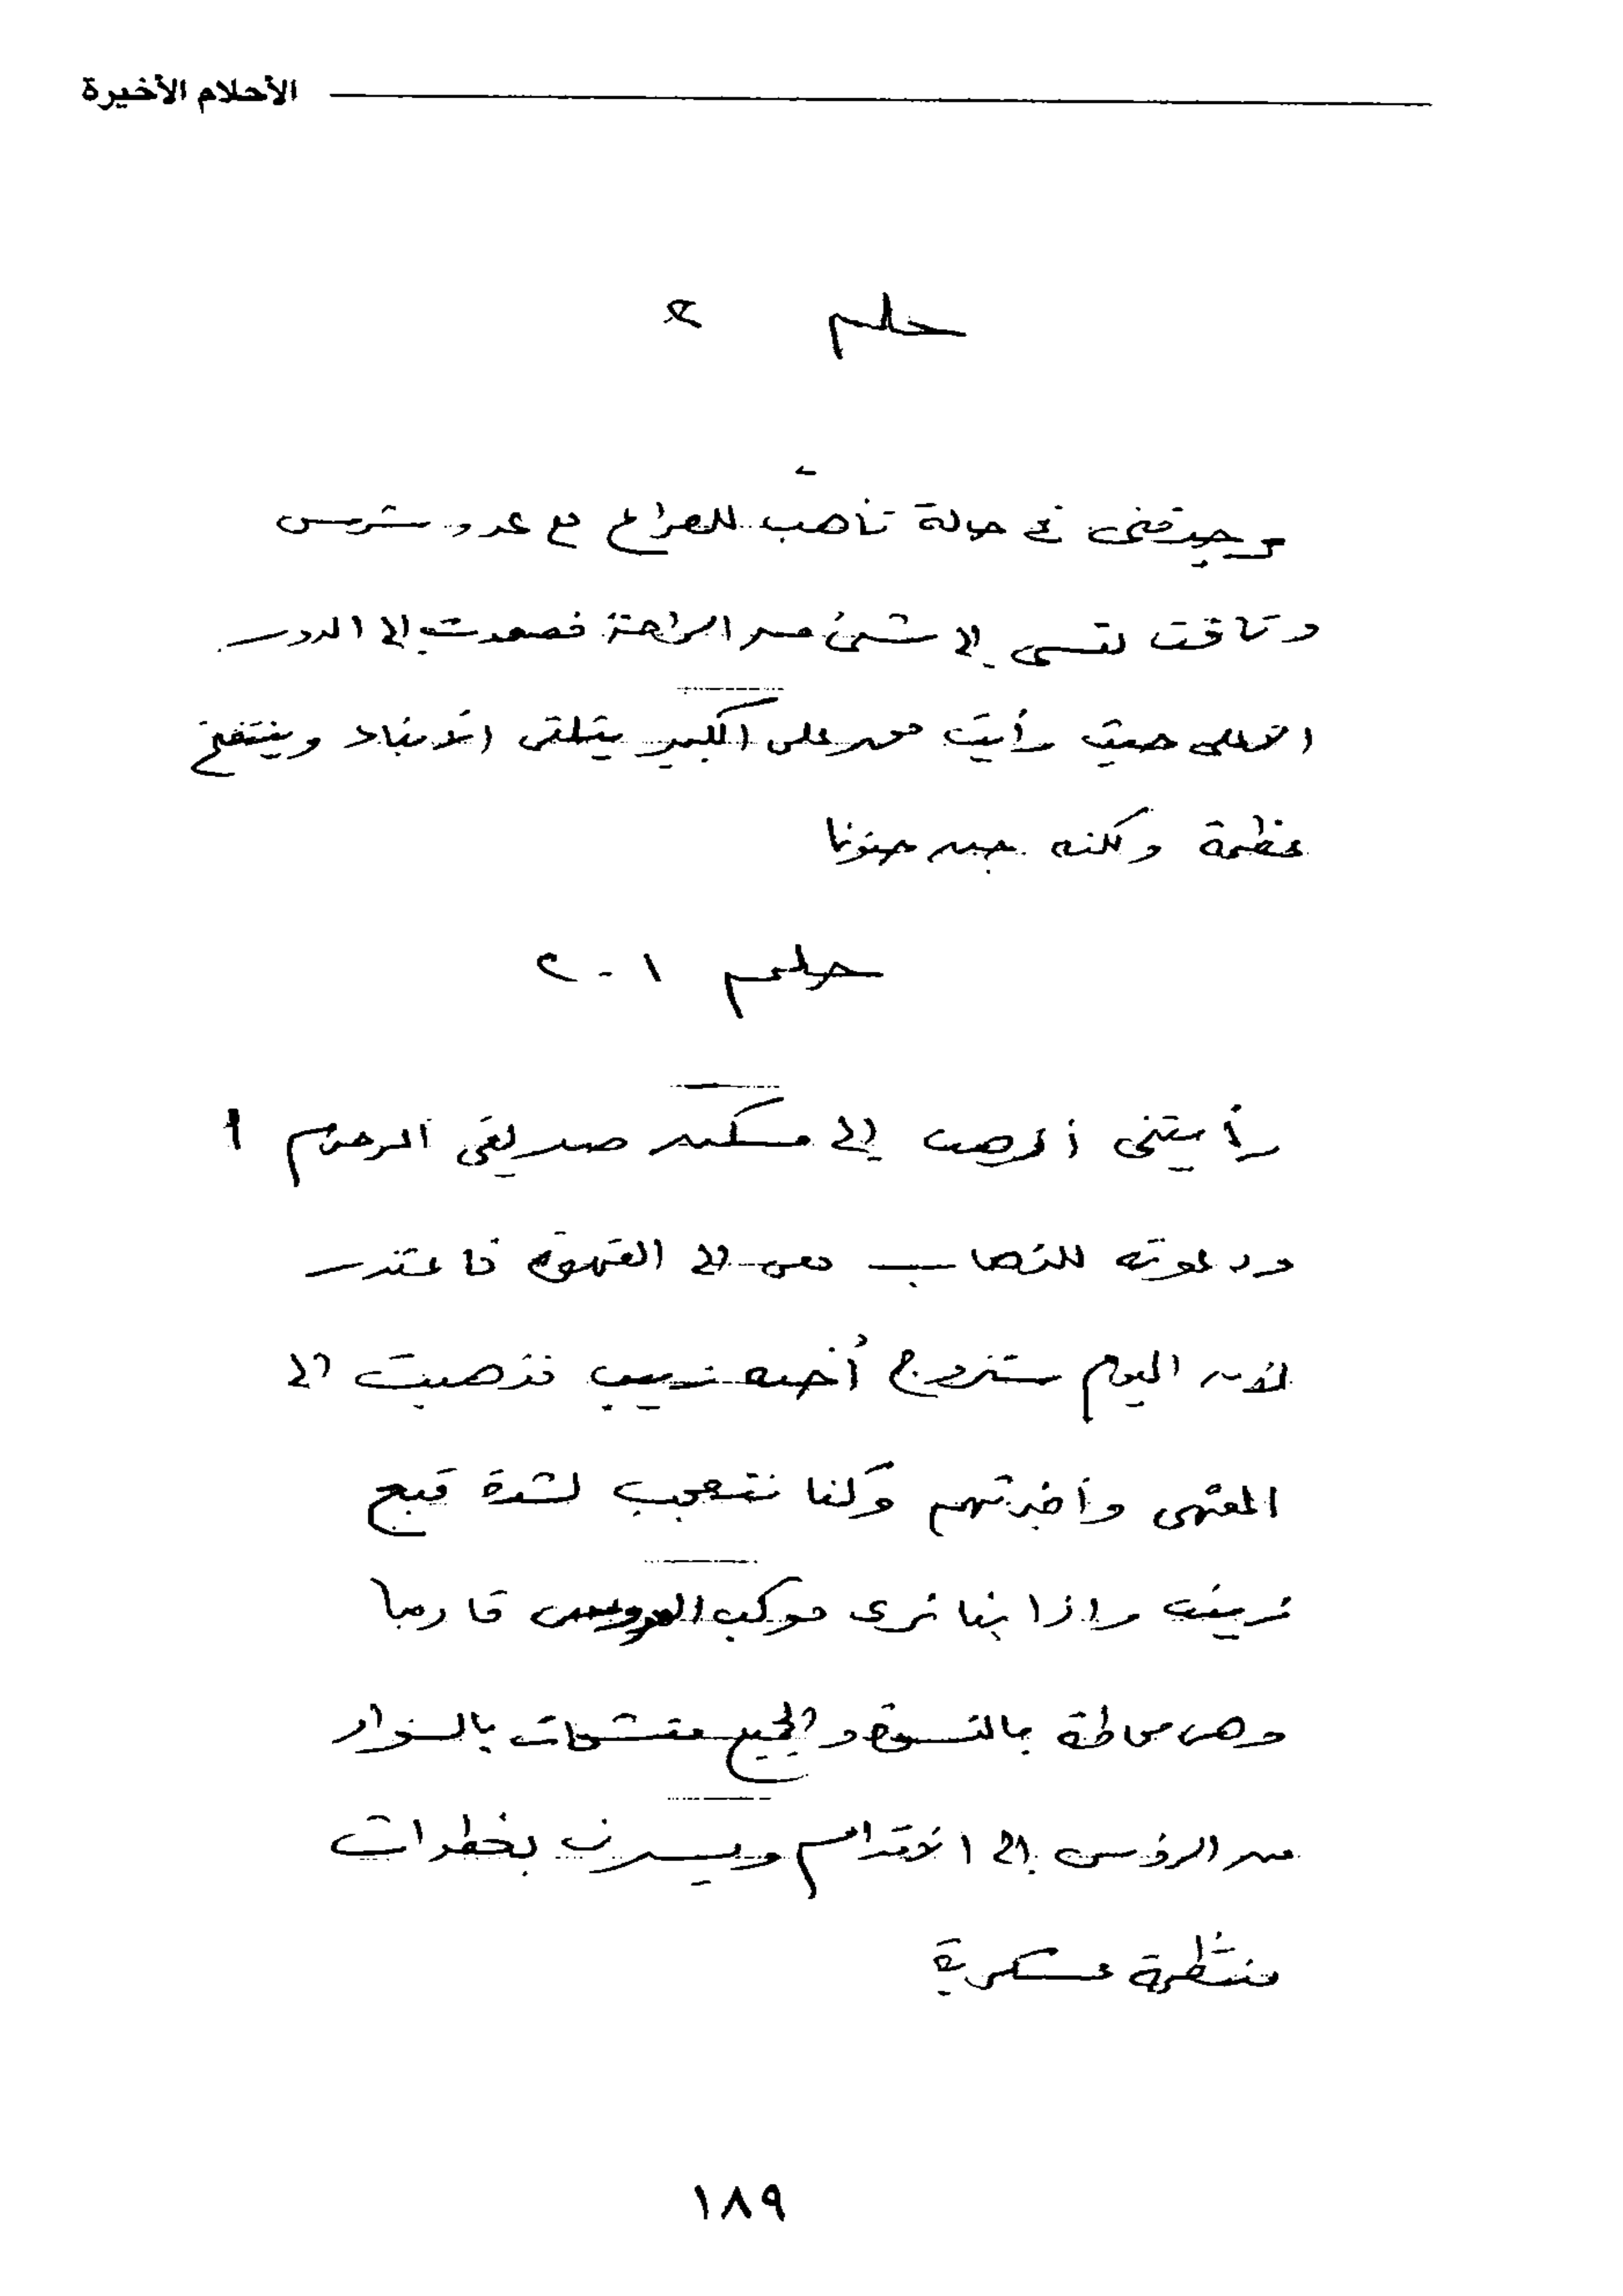 الأحلام الأخيرة
حلم
وجدتنى فى حالة تأهب للصراع مع عدو شرس
وتاقت نفسى إلى شئ من الراحة فصعدت إلى الدور
الأعلى حيث رأيت محمد على الكبير يتلقى الأنباء وينتفخ
عظمة ولكنه جن جنونا
حلم ٢٠١
رأيتنى أذهب إلى مسكن صديقى المرحوم أ
ودعوته للذهاب معى إلى القهوة فاعتذر
لأن اليوم ستزوج أخته زينب فذهبت إلى
المقهى وأخبرتهم وكنا نتعجب لشدة قبح
زينب وإذا بنا نرى موكب العروس قادما
وهى محاطة بالنسوة والجميع متشحات بالسواد
من الرؤس إلى الأقدام ويسرن بخطوات
منتظمة عسكرية
١٨٩